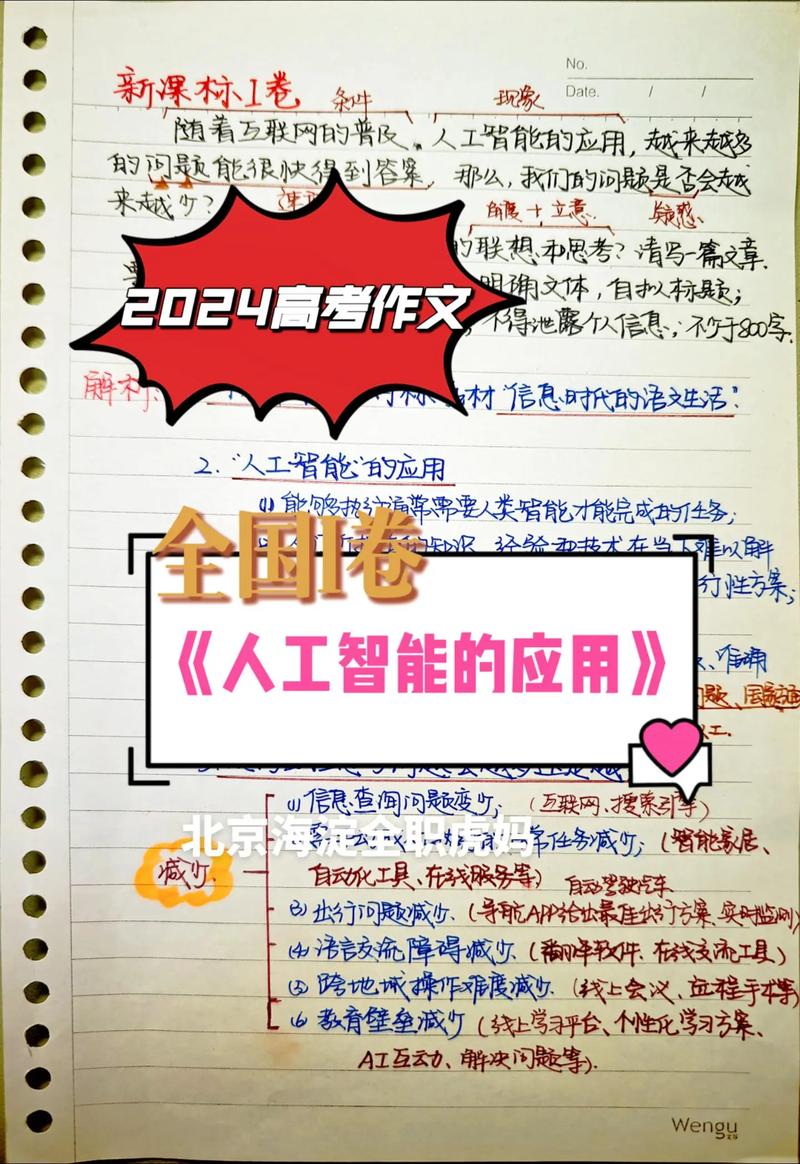 No.
Date. / /
新课标I卷 条件 现象
随着互联网的普及、人工智能的应用,越来越多
的问题能很快得到答案。那么,我们的问题是否会越
来越少?
角度+立意 疑惑
的联想和思考?请写一篇文章。
明确文体,自拟标题;
不得泄露个人信息;不少于800字.
2024高考作文
解析:
教材"信息时代的语文生活".
2."人工智能"的应用
(1)能够执行通常需要人类智能才能完成的任务;
知识、经验和技术在当下难以解
行性方案;
全国I卷
《人工智能的应用》
、准确
北京海淀全职虎妈
减少
(1)信息查询问题变少;(互联网、搜索引擎)
常任务减少;(智能家居、
自动化工具、在线服务等) 自动驾驶汽车
(3)出行问题减少.(导航APP给出最佳出行方案、实时监测)
(4)语言交流障碍减少.(翻译软件、在线交流工具)
(5)跨地域操作难度减少.(线上会议、远程手术等)
(6)教育壁垒减少(线上学习平台、个性化学习方案、
AI互动、解决问题等).
Wengu